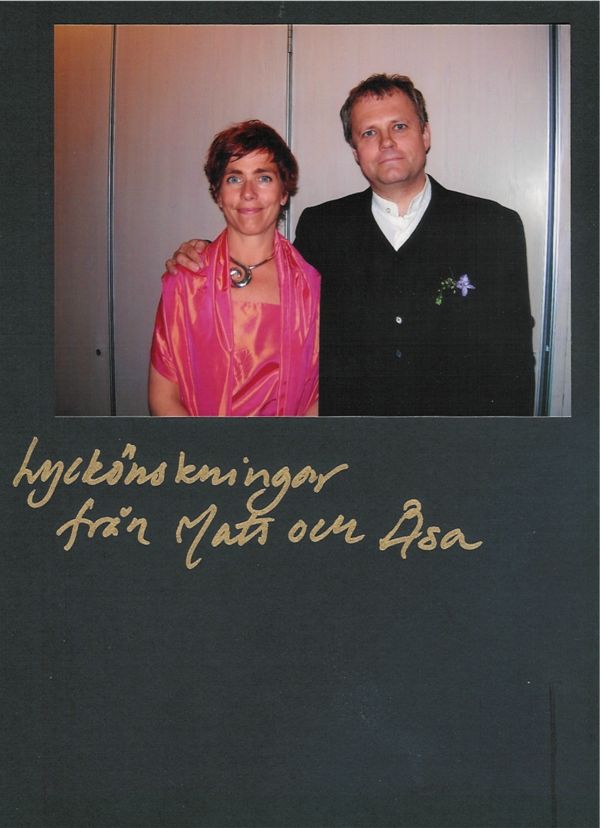 Lyckönskningar
från Mats och Åsa